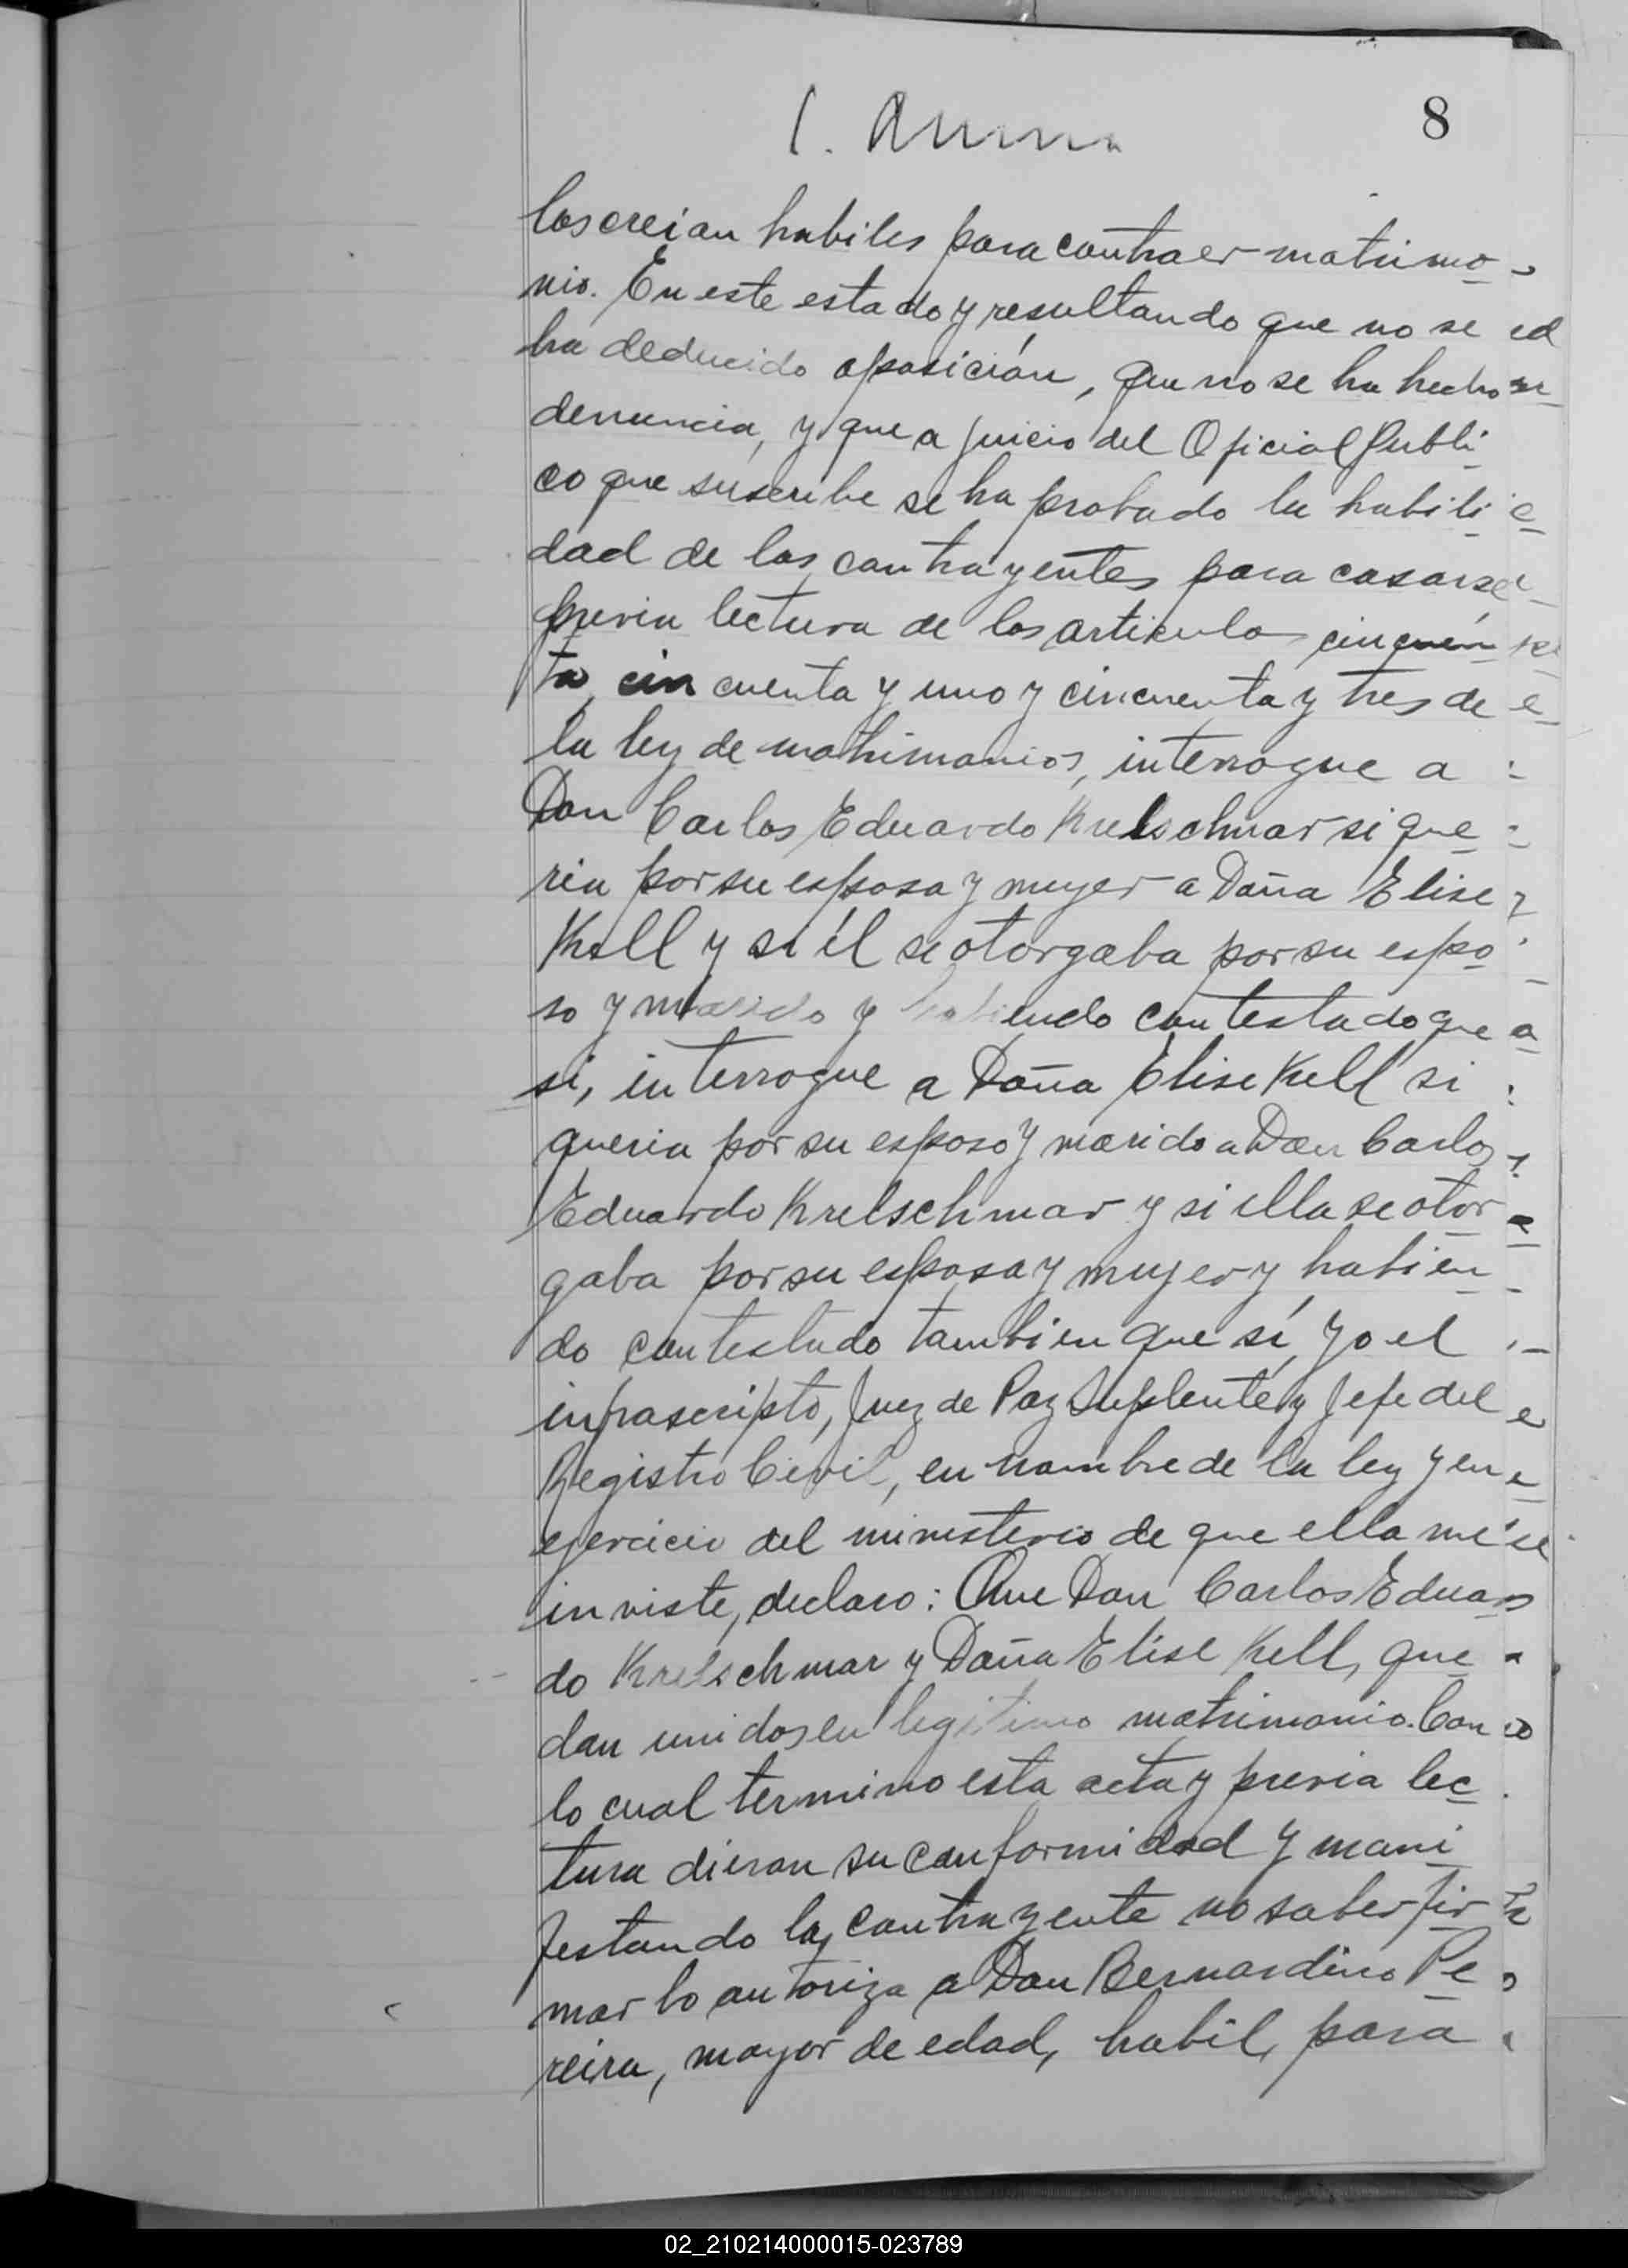 8
los creian habiles para contraer matrimo
nio. En este estado y resultando que no se
ha deducido oposición, que no se ha hecho
denuncia, y que a juicio del Oficial Publi
co que suscribe se ha probado la habili
dad de los contrayentes para casarse
previa lectura de los articulos cincuen
ta, cincuenta y uno y cincuenta y tres de
la ley de matrimonios, interrogue a
Don Carlos Eduardo Krelschmar si que
ria por su esposa y mujer a Doña Elise
Kell y si él se otorgaba por su espo
so y marido y habiendo contestado que
si, interrogue a Doña Elise Kell si
queria por su esposo y marido a Don Carlos
Eduardo Krelschmar y si ella se otor
gaba por su esposa y mujer y habien
do contestado tambien que sí, yo el
infrascripto, Juez de Paz Suplente y Jefe del
Registro Civil, en nombre de la ley y en
ejercicio del ministerio de que ella me
inviste, declaro: Que Don Carlos Eduar
do Krelschmar y Doña Elise Kell, que
dan unidos en legitimo matrimonio. Con
lo cual termino esta acta y previa lec
tura dieron su conformidad y mani
festando la contrayente no saber fir
mar lo autoriza a Don Bernardino Pe
reira, mayor de edad, habil, para
02_210214000015-023789